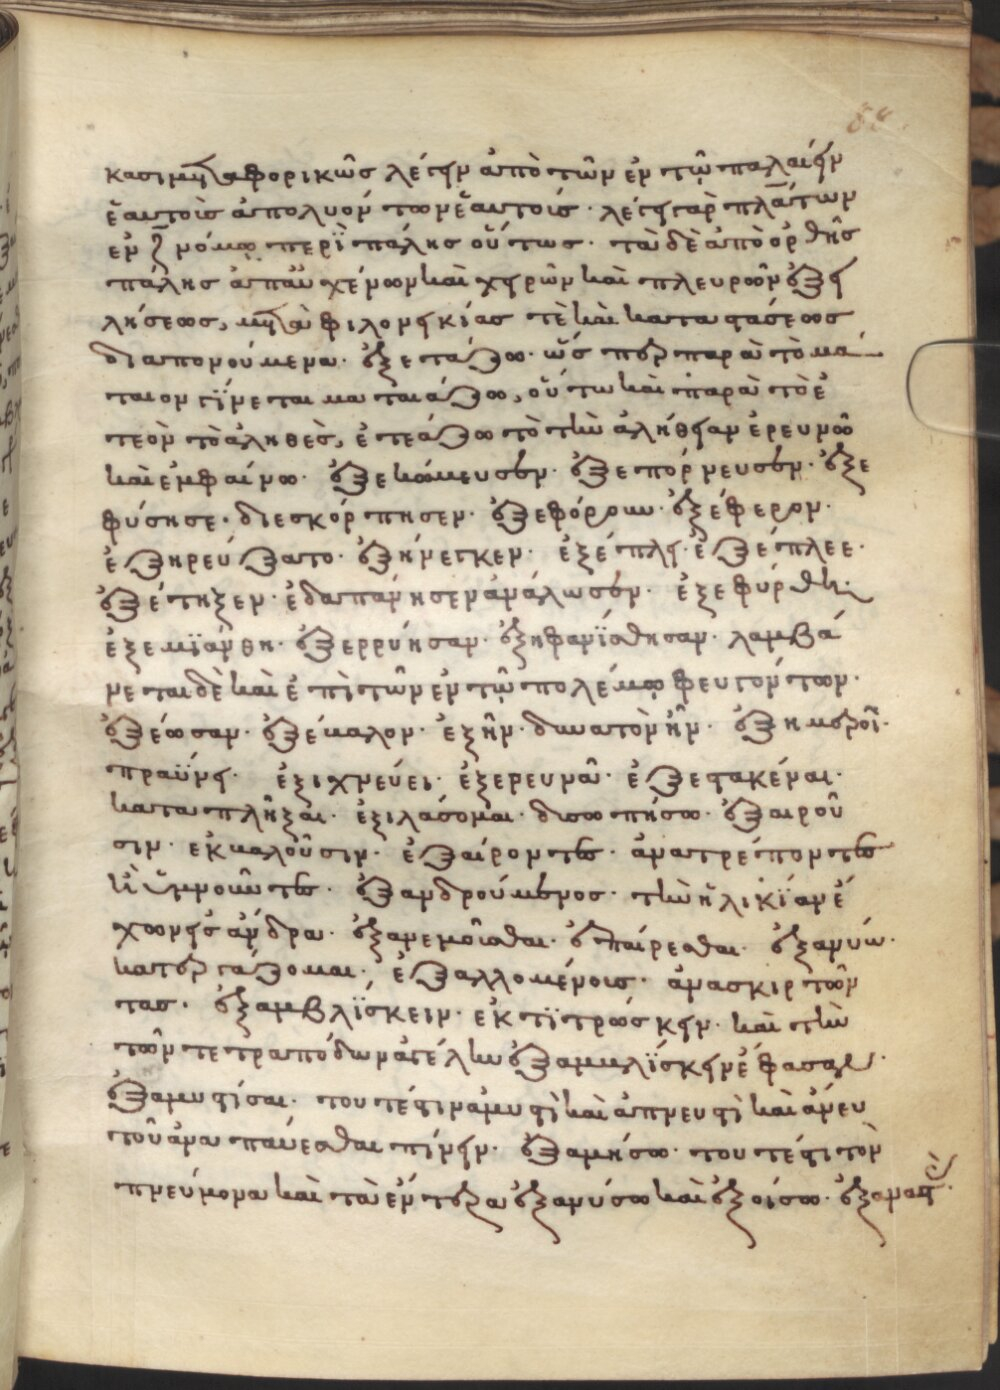 κασι μεταφορικῶς λέγειν ἀπὸ τῶν ἐν τῷ παλαίειν
ἑαυτοὺς ἀπολυόντων ἑαυτοῖς· λέγει γὰρ πλάτων
ἐν ζ νόμῳ περὶ πάλης οὕτως· τὰ δὲ ἀπὸ ὀρθῆς
πάλης ἀπ' αὐχένων καὶ χειρῶν καὶ πλευρῶν ἐξει
λήσεως, μετὰ φιλονεικίας τὲ καὶ καταστάσεως
διαπονούμενα· ἐξετάζω· ὥσπερ παρὰ τὸ μά
ταιον γίνεται ματαιάζω, οὕτω καὶ παρὰ τὸ ἐ
τεὸν τὸ ἀληθὲς, ἐτεάζω τὸ τὴν ἀλήθειαν ἐρευνῶ
καὶ ἐμφαίνω· ἐξεκώμευσεν· ἐξεπόρνευσεν· ἐξε
φύσησε· διεσκόρπησεν· ἐξεφόρουν· ἐξέφερον·
ἐξηρεύξατο· ἐξήνεγκεν· ἐξέπλει· ἐξέπλεε·
ἐξέτηξεν· ἐδαπάνησεν ἀνάλωσεν· ἐξεφύρθη·
ἐξεμϊάνθη· ἐξερρύησαν· ἐξηφανίσθησαν· λαμβά
νεται δὲ καὶ ἐπὶ τῶν ἐν τῷ πολέμῳ φευγόντων·
ἐξέωσαν· ἐξέβαλον· ἐξῆν· δυνατὸν ἦν· ἐξημεροῖ·
πραΰνει· ἐξιχνεύει· ἐξερευνᾶ· ἐξεστακέναι·
καταπλῆξαι· ἐξιλάσομαι· δυσωπήσω· ἐξαιροῦ
σιν· ἐκβαλοῦσιν· ἐξαίροντες· ἀνατρέποντες
ἢ ὑμνοῦντες· ἐξανδρούμενος· τὴν ἡλικίαν ἔ
χων εἰς ἄνδρα· ἐξανεμοῦσθαι· ἐπαίρεσθαι· ἐξανύω·
κατεργάζομαι· ἐξαλλομένοις· ἀνασκιρτῶν
τας· ἐξαμβλΐσκειν· ἐκτϊτρώσκειν· καὶ τὴν
τῶν τετραπόδων ἀτέλειαν ἐξαμβλΐσκειν ἔφασαν·
ἐξαμυστίσαι· τουτέστιν ἀμυστὶ καὶ ἀπνευστὶ καὶ ἄνευ
τοῦ ἀναπαύεσθαι πίνειν· ἐξαμήσω· τουτέστι τὸν
πνεύμονα καὶ τὰ ἔντερα ἐξανύσω καὶ ἐξοίσω·